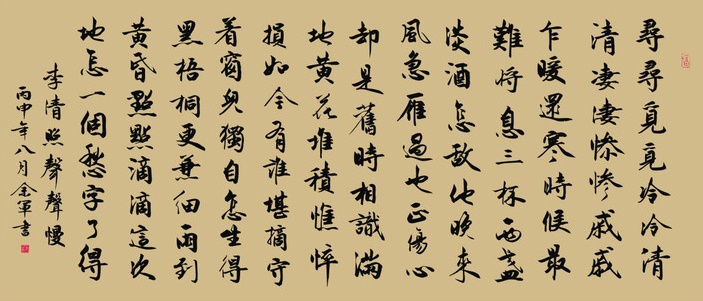 尋尋覓覓冷冷清
清淒淒惨惨戚戚
乍暖還寒時候最
難將息三杯兩盞
淡酒怎敵他晚來
風急雁過也正傷心
却是舊時相識滿
地黃花堆積憔悴
損如今有誰堪摘守
着窗兒獨自怎生得
黑梧桐更兼細雨到
黃昏點點滴滴這次
地怎一個愁字了得
李清照聲聲慢
丙申年八月金軍書